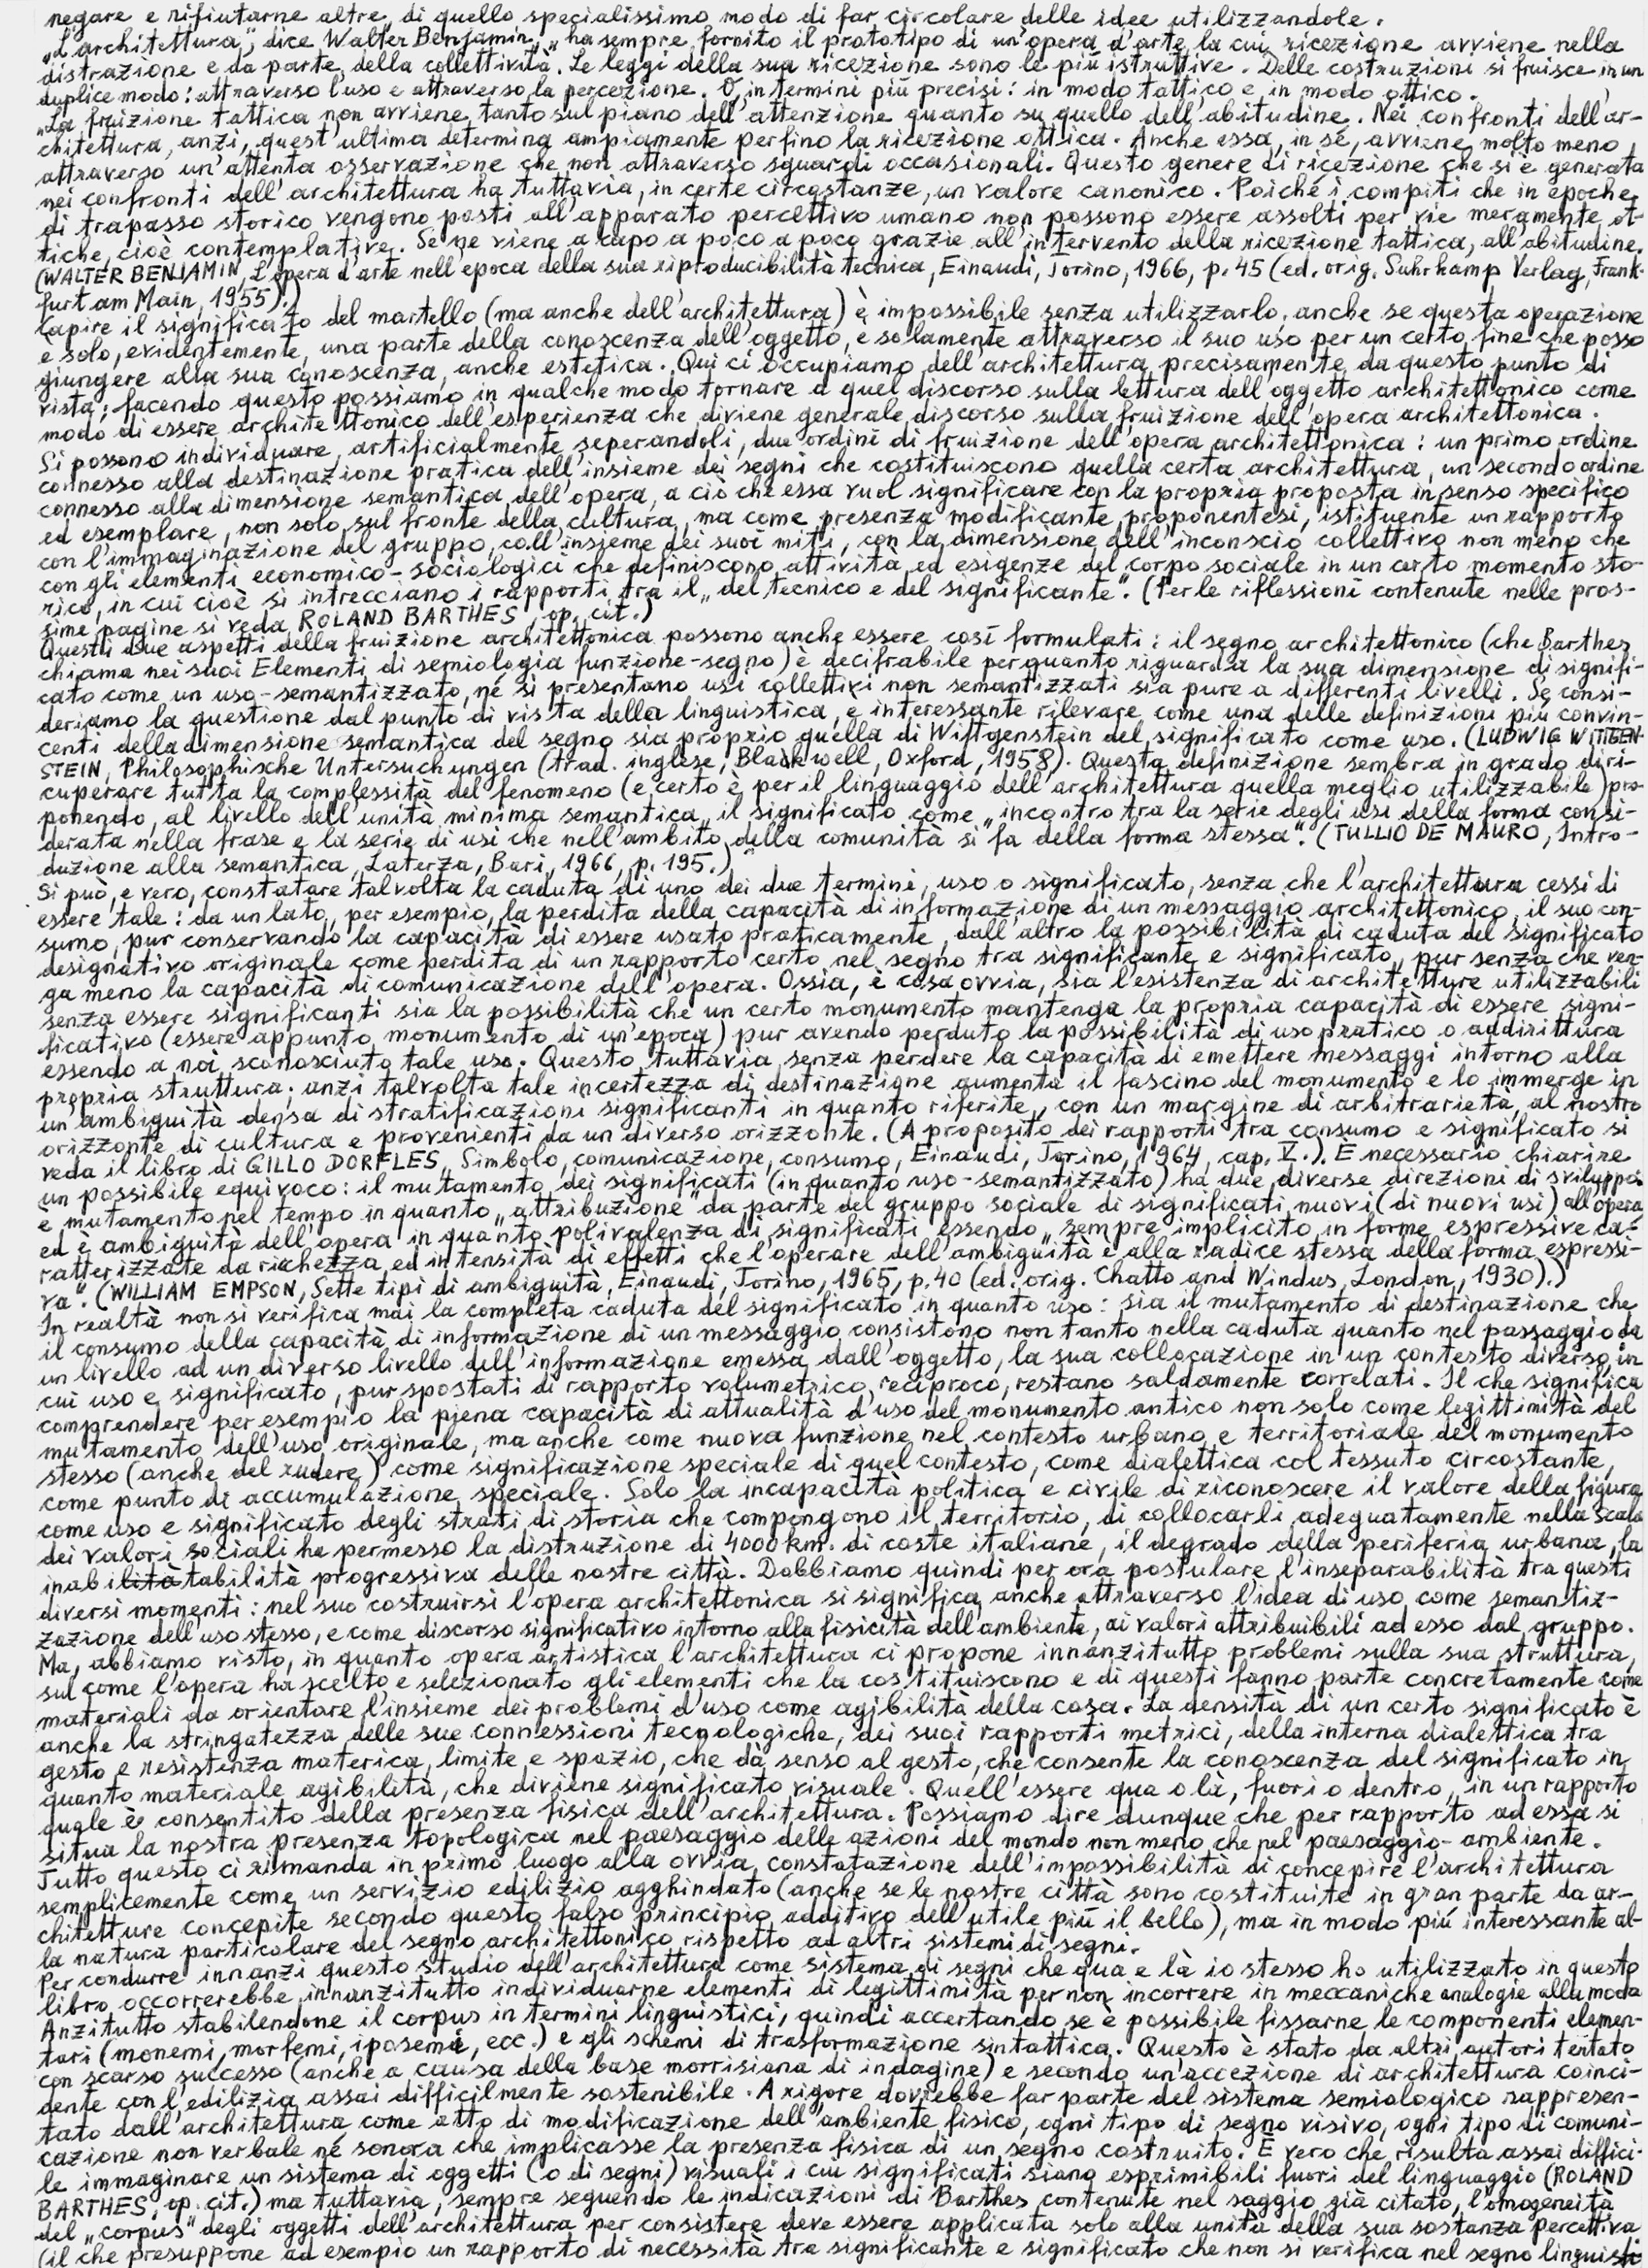 negare e rifiutarne altre, di quello specialissimo modo di far circolare delle idee utilizzandole.
„L'architettura", dice Walter Benjamin, „ha sempre fornito il prototipo di un'opera d'arte la cui ricezione avviene nella
distrazione e da parte della collettività. Le leggi della sua ricezione sono le più istruttive. Delle costruzioni si fruisce in un
duplice modo: attraverso l'uso e attraverso la percezione. O, in termini più precisi: in modo tattico e in modo ottico.
„La fruizione tattica non avviene tanto sul piano dell'attenzione quanto su quello dell'abitudine. Nei confronti dell'ar-
chitettura, anzi, quest'ultima determina ampiamente perfino la ricezione ottica. Anche essa, in sé, avviene molto meno
attraverso un'attenta osservazione che non attraverso sguardi occasionali. Questo genere di ricezione che si è generata
nei confronti dell'architettura ha tuttavia, in certe circostanze, un valore canonico. Poiché i compiti che in epoche
di trapasso storico vengono posti all'apparato percettivo umano non possono essere assolti per vie meramente ot-
tiche, cioè contemplative. Se ne viene a capo a poco a poco grazie all'intervento della ricezione tattica, all'abitudine.
(WALTER BENJAMIN, L'opera d'arte nell'epoca della sua riproducibilità tecnica, Einaudi, Torino, 1966, p. 45 (ed. orig. Suhrkamp Verlag, Frank-
furt am Main, 1955).)
Capire il significato del martello (ma anche dell'architettura) è impossibile senza utilizzarlo, anche se questa operazione
è solo, evidentemente, una parte della conoscenza dell'oggetto, e solamente attraverso il suo uso per un certo fine che posso
giungere alla sua conoscenza, anche estetica. Qui ci occupiamo dell'architettura precisamente da questo punto di
vista; facendo questo possiamo in qualche modo tornare a quel discorso sulla lettura dell'oggetto architettonico come
modo di essere architettonico dell'esperienza che diviene generale discorso sulla fruizione dell'opera architettonica.
Si possono individuare, artificialmente seperandoli, due ordini di fruizione dell'opera architettonica: un primo ordine
connesso alla destinazione pratica dell'insieme dei segni che costituiscono quella certa architettura, un secondo ordine
connesso alla dimensione semantica dell'opera, a ciò che essa vuol significare con la propria proposta in senso specifico
ed esemplare, non solo sul fronte della cultura, ma come presenza modificante, proponentesi, istituente un rapporto
con l'immaginazione del gruppo, coll'insieme dei suoi miti, con la dimensione dell'inconscio collettivo non meno che
con gli elementi economico-sociologici che definiscono attività ed esigenze del corpo sociale in un certo momento sto-
rico, in cui cioè si intrecciano i rapporti tra il „del tecnico e del significante". (Per le riflessioni contenute nelle pros-
sime pagine si veda ROLAND BARTHES, op. cit.)
Questi due aspetti della fruizione architettonica possono anche essere così formulati: il segno architettonico (che Barthes
chiama nei suoi Elementi di semiologia funzione-segno) è decifrabile per quanto riguarda la sua dimensione di signifi-
cato come un uso-semantizzato, né si presentano usi collettivi non semantizzati sia pure a differenti livelli. Se consi-
deriamo la questione dal punto di vista della linguistica, e interessante rilevare come una delle definizioni più convin-
centi della dimensione semantica del segno sia proprio quella di Wittgenstein del significato come uso. (LUDWIG WITTGEN-
STEIN, Philosophische Untersuchungen (trad. inglese, Blackwell, Oxford, 1958). Questa definizione sembra in grado di ri-
cuperare tutta la complessità del fenomeno (e certo è per il linguaggio dell'architettura quella meglio utilizzabile) pro-
ponendo, al livello dell'unità minima semantica, il significato come „incontro tra la serie degli usi della forma consi-
derata nella frase e la serie di usi che nell'ambito della comunità si fa della forma stessa". (TULLIO DE MAURO, Intro-
duzione alla semantica, Laterza, Bari, 1966, p. 195.)
Si può, e vero, constatare talvolta la caduta di uno dei due termini, uso o significato, senza che l'architettura cessi di
essere tale: da un lato, per esempio, la perdita della capacità di informazione di un messaggio architettonico, il suo con-
sumo, pur conservando la capacità di essere usato praticamente, dall'altro la possibilità di caduta del significato
designativo originale come perdita di un rapporto certo nel segno tra significante e significato, pur senza che ven-
ga meno la capacità di comunicazione dell'opera. Ossia, è cosa ovvia, sia l'esistenza di architetture utilizzabili
senza essere significanti sia la possibilità che un certo monumento mantenga la propria capacità di essere signi-
ficativo (essere appunto monumento di un'epoca) pur avendo perduto la possibilità di uso pratico o addirittura
essendo a noi sconosciuto tale uso. Questo tuttavia senza perdere la capacità di emettere messaggi intorno alla
propria struttura; anzi talvolta tale incertezza di destinazione aumenta il fascino del monumento e lo immerge in
un'ambiguità densa di stratificazioni significanti in quanto riferite, con un margine di arbitrarietà, al nostro
orizzonte di cultura e provenienti da un diverso orizzonte. (A proposito dei rapporti tra consumo e significato si
veda il libro di GILLO DORFLES, Simbolo, comunicazione, consumo, Einaudi, Torino, 1964, cap. V.). È necessario chiarire
un possibile equivoco: il mutamento dei significati (in quanto uso-semantizzato) ha due diverse direzioni di sviluppo:
e mutamento nel tempo in quanto „attribuzione" da parte del gruppo sociale di significati nuovi (di nuovi usi) all'opera
ed è ambiguità dell'opera in quanto polivalenza di significati essendo „sempre implicito in forme espressive ca-
ratterizzate da ricchezza ed intensità di effetti che l'operare dell'ambiguità è alla radice stessa della forma espressi-
va". (WILLIAM EMPSON, Sette tipi di ambiguità, Einaudi, Torino, 1965, p. 40 (ed. orig. Chatto and Windus, London, 1930).)
In realtà non si verifica mai la completa caduta del significato in quanto uso: sia il mutamento di destinazione che
il consumo della capacità di informazione di un messaggio consistono non tanto nella caduta quanto nel passaggio da
un livello ad un diverso livello dell'informazione emessa dall'oggetto, la sua collocazione in un contesto diverso in
cui uso e significato, pur spostati di rapporto volumetrico reciproco, restano saldamente correlati. Il che significa
comprendere per esempio la piena capacità di attualità d'uso del monumento antico non solo come legittimità del
mutamento dell'uso originale, ma anche come nuova funzione nel contesto urbano e territoriale del monumento
stesso (anche del rudere) come significazione speciale di quel contesto, come dialettica col tessuto circostante,
come punto di accumulazione speciale. Solo la incapacità politica e civile di riconoscere il valore della figura
come uso e significato degli strati di storia che compongono il territorio, di collocarli adeguatamente nella scala
dei valori sociali ha permesso la distruzione di 4000 km. di coste italiane, il degrado della periferia urbana, la
inabilitàtabilità progressiva delle nostre città. Dobbiamo quindi per ora postulare l'inseparabilità tra questi
diversi momenti: nel suo costruirsi l'opera architettonica si significa anche attraverso l'idea di uso come semantiz-
zazione dell'uso stesso, e come discorso significativo intorno alla fisicità dell'ambiente, ai valori attribuibili ad esso dal gruppo.
Ma, abbiamo visto, in quanto opera artistica l'architettura ci propone innanzitutto problemi sulla sua struttura,
sul come l'opera ha scelto e selezionato gli elementi che la costituiscono e di questi fanno parte concretamente come
materiali da orientare l'insieme dei problemi d'uso come agibilità della cosa. La densità di un certo significato è
anche la stringatezza delle sue connessioni tecnologiche, dei suoi rapporti metrici, della interna dialettica tra
gesto e resistenza materica, limite e spazio, che dà senso al gesto, che consente la conoscenza del significato in
quanto materiale agibilità, che diviene significato visuale. Quell'essere qua o là, fuori o dentro, in un rapporto
quale è consentito della presenza fisica dell'architettura. Possiamo dire dunque che per rapporto ad essa si
situa la nostra presenza topologica nel paesaggio delle azioni del mondo non meno che nel paesaggio-ambiente.
Tutto questo ci rimanda in primo luogo alla ovvia constatazione dell'impossibilità di concepire l'architettura
semplicemente come un servizio edilizio agghindato (anche se le nostre città sono costituite in gran parte da ar-
chitetture concepite secondo questo falso principio additivo dell'utile più il bello), ma in modo più interessante al-
la natura particolare del segno architettonico rispetto ad altri sistemi di segni.
Per condurre innanzi questo studio dell'architettura come sistema di segni che qua e là io stesso ho utilizzato in questo
libro, occorrerebbe innanzitutto individuarne elementi di legittimità per non incorrere in meccaniche analogie alla moda
Anzitutto stabilendone il corpus in termini linguistici, quindi accertando se è possibile fissarne le componenti elemen-
tari (monemi, morfemi, iposemi, ecc.) e gli schemi di trasformazione sintattica. Questo è stato da altri autori tentato
con scarso successo (anche a causa della base morrisiana di indagine) e secondo un'accezione di architettura coinci-
dente con l'edilizia assai difficilmente sostenibile. A rigore dovrebbe far parte del sistema semiologico rappresen-
tato dall'architettura come atto di modificazione dell'ambiente fisico, ogni tipo di segno visivo, ogni tipo di comuni-
cazione non verbale né sonora che implicasse la presenza fisica di un segno costruito. È vero che risulta assai diffici-
le immaginare un sistema di oggetti (o di segni) visuali i cui significati siano esprimibili fuori del linguaggio (ROLAND
BARTHES, op. cit.) ma tuttavia, sempre seguendo le indicazioni di Barthes contenute nel saggio già citato, l'omogeneità
del „corpus" degli oggetti dell'architettura per consistere deve essere applicata solo alla unità della sua sostanza percettiva
(il che presuppone ad esempio un rapporto di necessità tra significante e significato che non si verifica nel segno linguisti